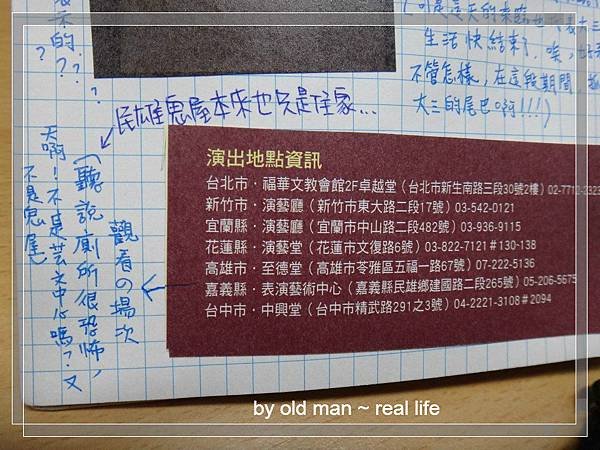 示的??
?
?
(可是這天的來臨也代表大三
生活快結束了,唉,好
不管怎樣,在這段期間,
大三的尾巴啊!!!)
民雄鬼屋本來也只是住家...
(聽說廁所很恐怖,
天啊!不是芸文中心嗎?又
不是鬼屋
觀看の場次
演出地點資訊
台北市・福華文教會館2F卓越堂(台北市新生南路三段30號2樓)02-7712-2323
新竹市・演藝廳(新竹市東大路二段17號)03-542-0121
宜蘭縣・演藝廳(宜蘭市中山路二段482號)03-936-9115
花蓮縣・演藝堂(花蓮市文復路6號)03-822-7121#130-138
高雄市・至德堂(高雄市苓雅區五福一路67號)07-222-5136
嘉義縣・表演藝術中心(嘉義縣民雄鄉建國路二段265號)05-206-5675
台中市・中興堂(台中市精武路291之3號)04-2221-3108#2094
by old man ~ real life